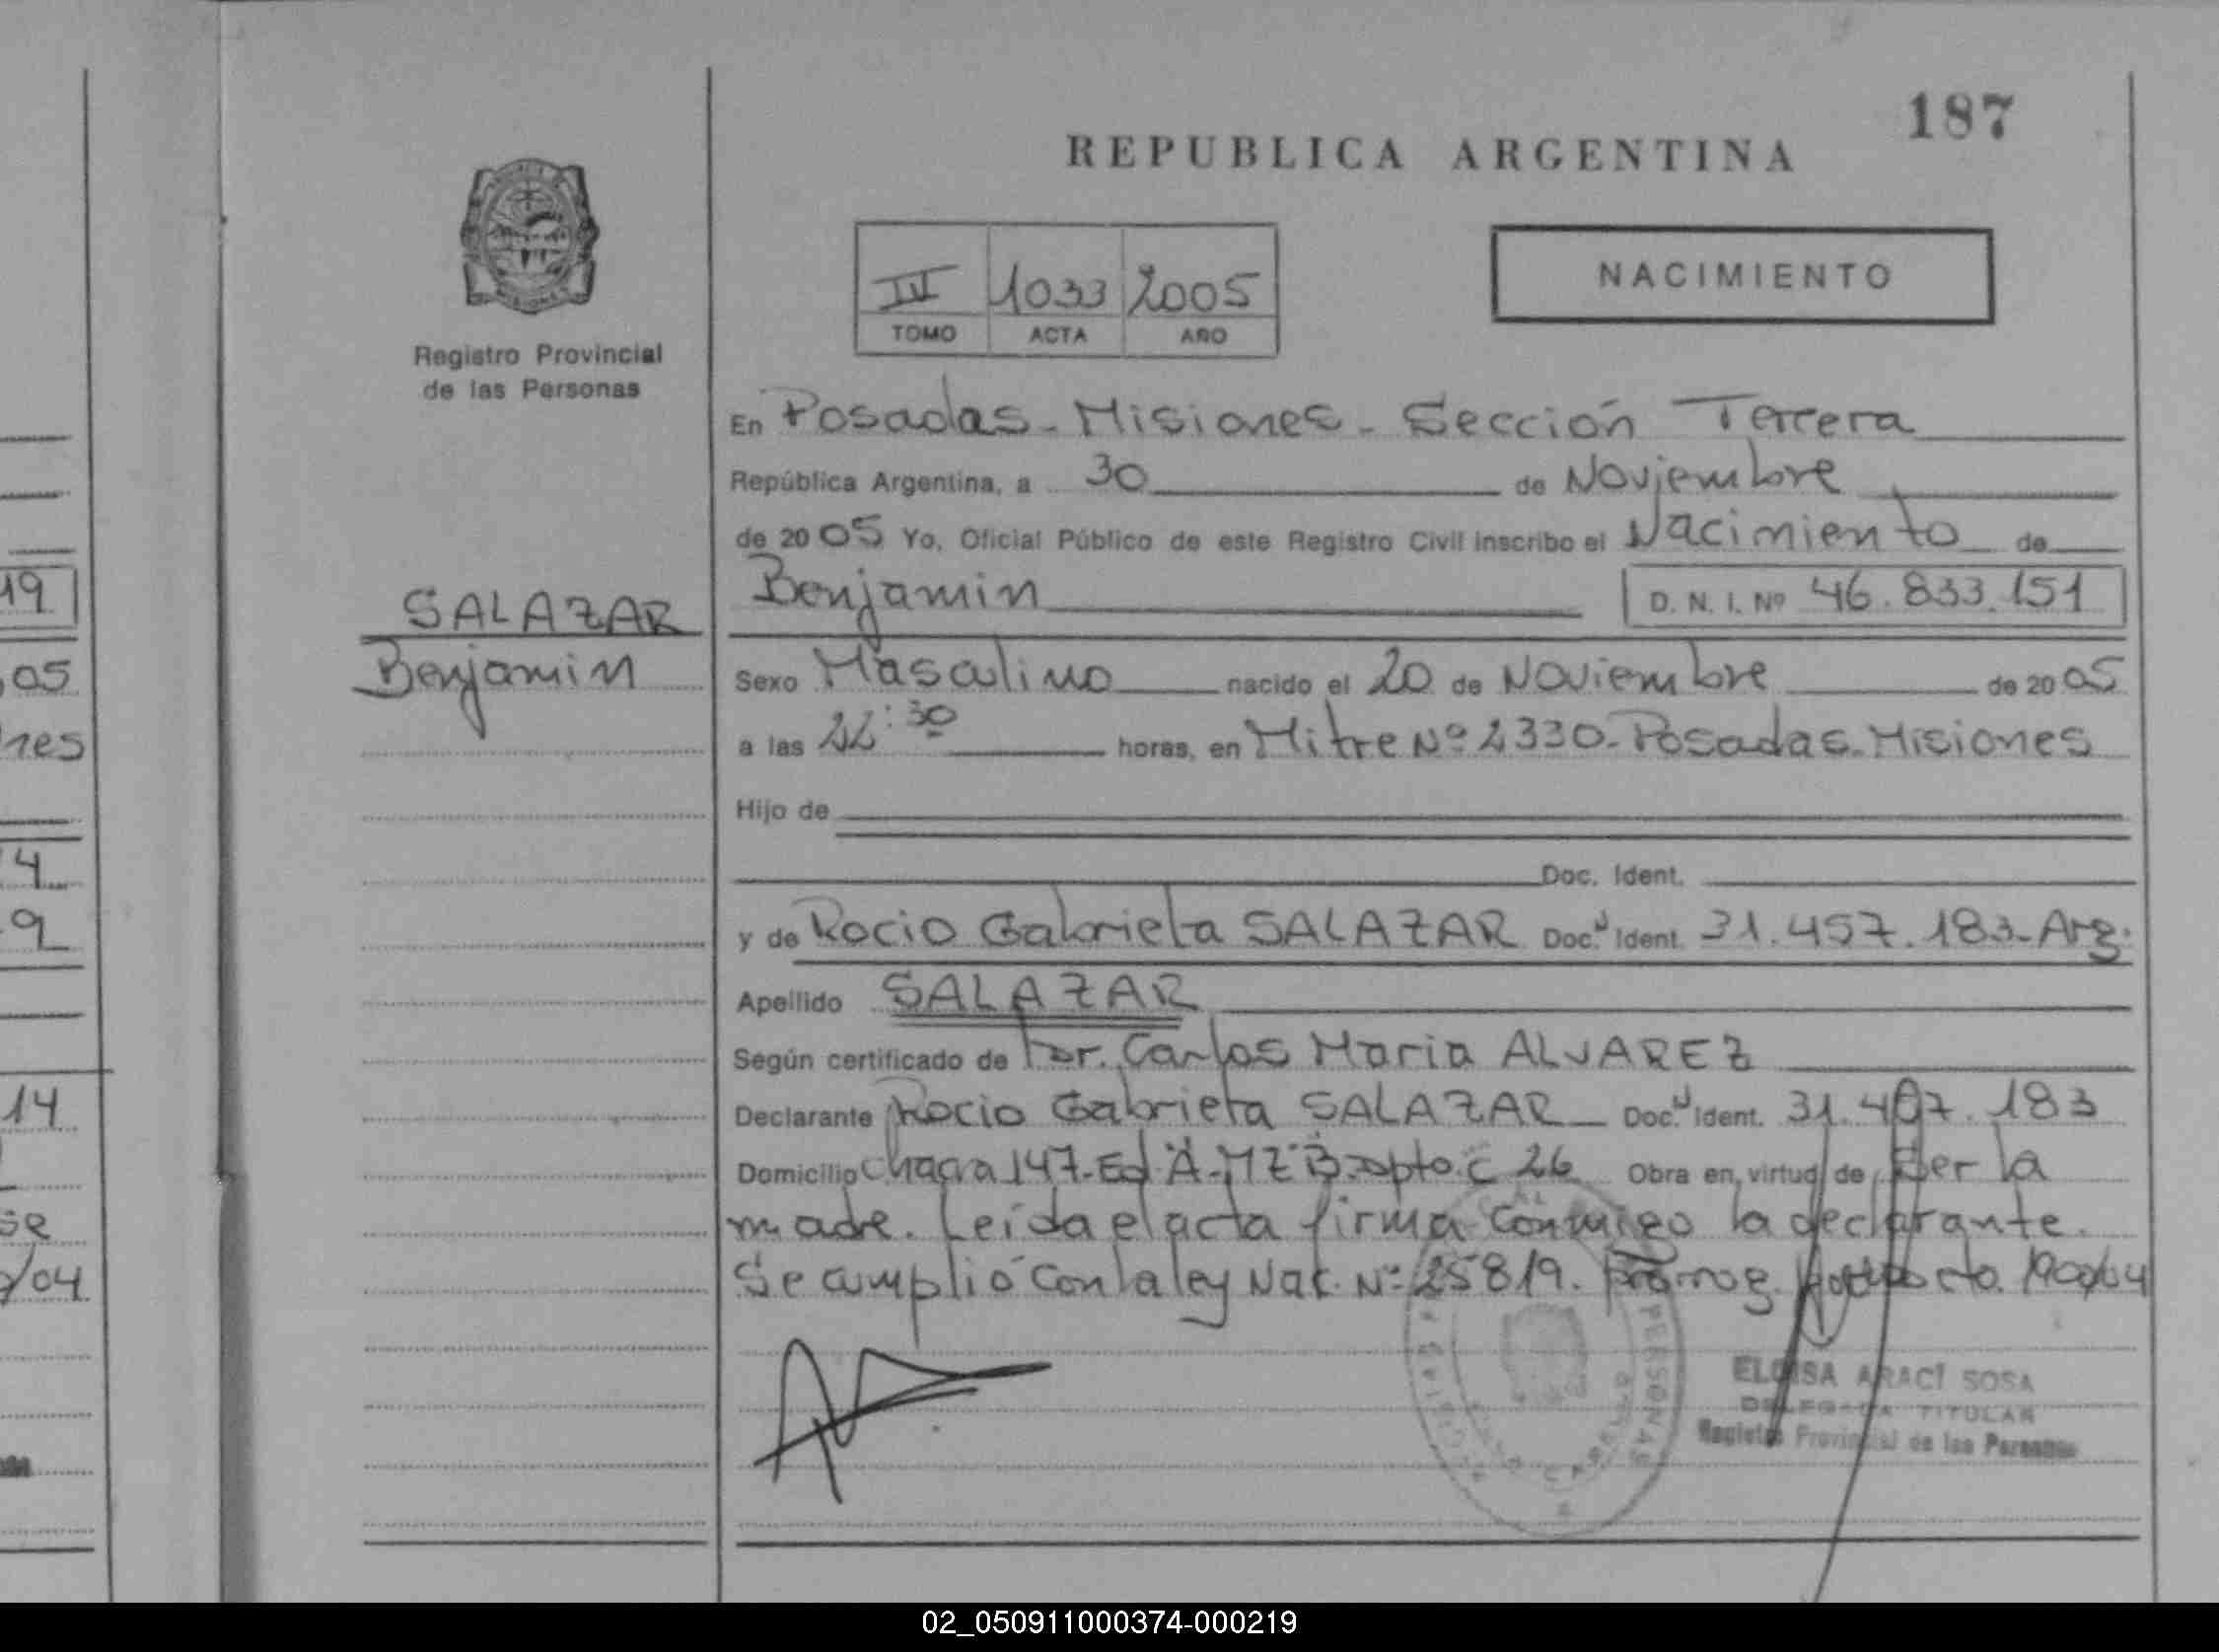 187
REPUBLICA ARGENTINA
NACIMIENTO
1033 2005
TOMO ACTA AÑO
Registro Provincial
de las Personas
En Posadas - Misiones - Sección Tercera
República Argentina, a 30 de Noviembre
de 2005 Yo, Oficial Público de este Registro Civil inscribo el Nacimiento de
Benjamin D. N. I. Nº 46.833.151
SALAZAR
Benjamin
Sexo Masculino nacido el 20 de Noviembre de 2005
a las 22:30 horas, en Mitre Nº 2330 - Posadas - Misiones
Hijo de
Doc. Ident.
y de Rocio Gabriela SALAZAR Doc. Ident. 31.457.183 - Arg.
Apellido SALAZAR
Según certificado de Dr. Carlos Maria ALVAREZ
Declarante Rocio Gabriela SALAZAR Doc. Ident. 183
Domicilio Chacra 147 - Ed A - MZ B - Dpto. C 26 Obra en virtud de Ser la
madre. Leída el acta firma conmigo la declarante.
Se cumplió con la ley Nac. Nº 25819.
PERSONAS
ELOISA ARACÍ SOSA
DELEGADA TITULAR
Registro Provincial de las Personas
19
05
res
4
9
14
se
/04
02_050911000374-000219